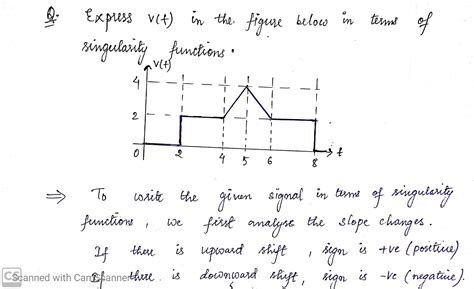 Q. Express v(t) in the figure below in terms of
singularity functions.
v(t)
4
2
0 2 4 5 6 8 t
⇒ To write the given signal in terms of singularity
functions, we first analyse the slope changes.
If there is upward shift, sign is +ve (positive)
If there is downward shift, sign is -ve (negative).
CS Scanned with CamScanner